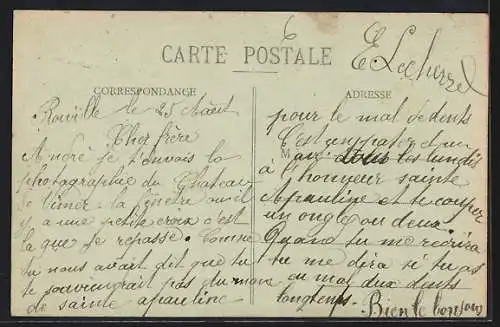 E Lecherzel
CARTE POSTALE
CORRESPONDANCE
ADRESSE
Rouville le 25 Août
Cher frère
André je t'envois la
photagraphie du Chateau
de la fenetre ou il
y a une petite croix c'est
la que Je repasse. Comme
tu nous avait dit que tu
te souviendrait pas du nom
de sainte apauline
pour le mal de dents
C'est un pater et un
ave. tous les lundis
à l'honneur sainte
Apauline et te couper
un ongle ou deux
Quand tu me recrira
tu me dira si tu as
eu mal aux dents
longtemps. Bien le bonjour